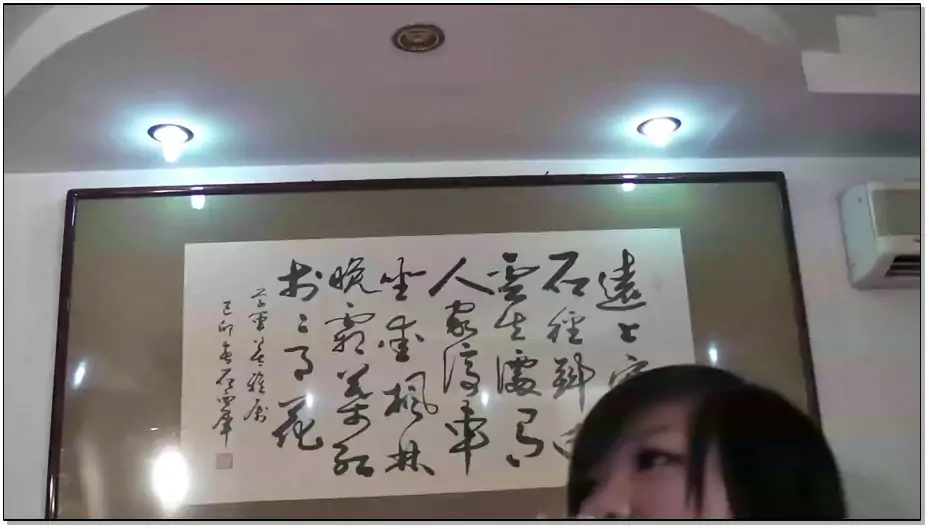 遠上
石徑斜
雲生處有
人家停車
坐愛楓林
晚霜葉紅
於二月花
己卯